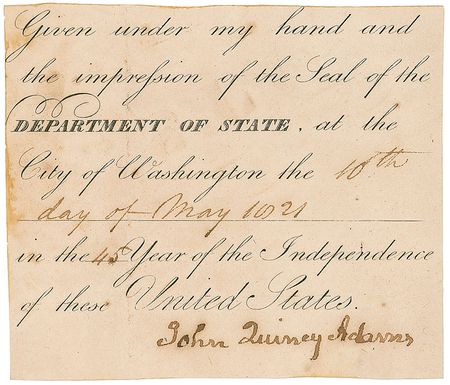 Given under my hand and
the impreſsion of the Seal of the
DEPARTMENT OF STATE, at the
City of Washington the 10th
day of May 1821
in the 45 Year of the Independence
of these United States.
John Quincy Adams